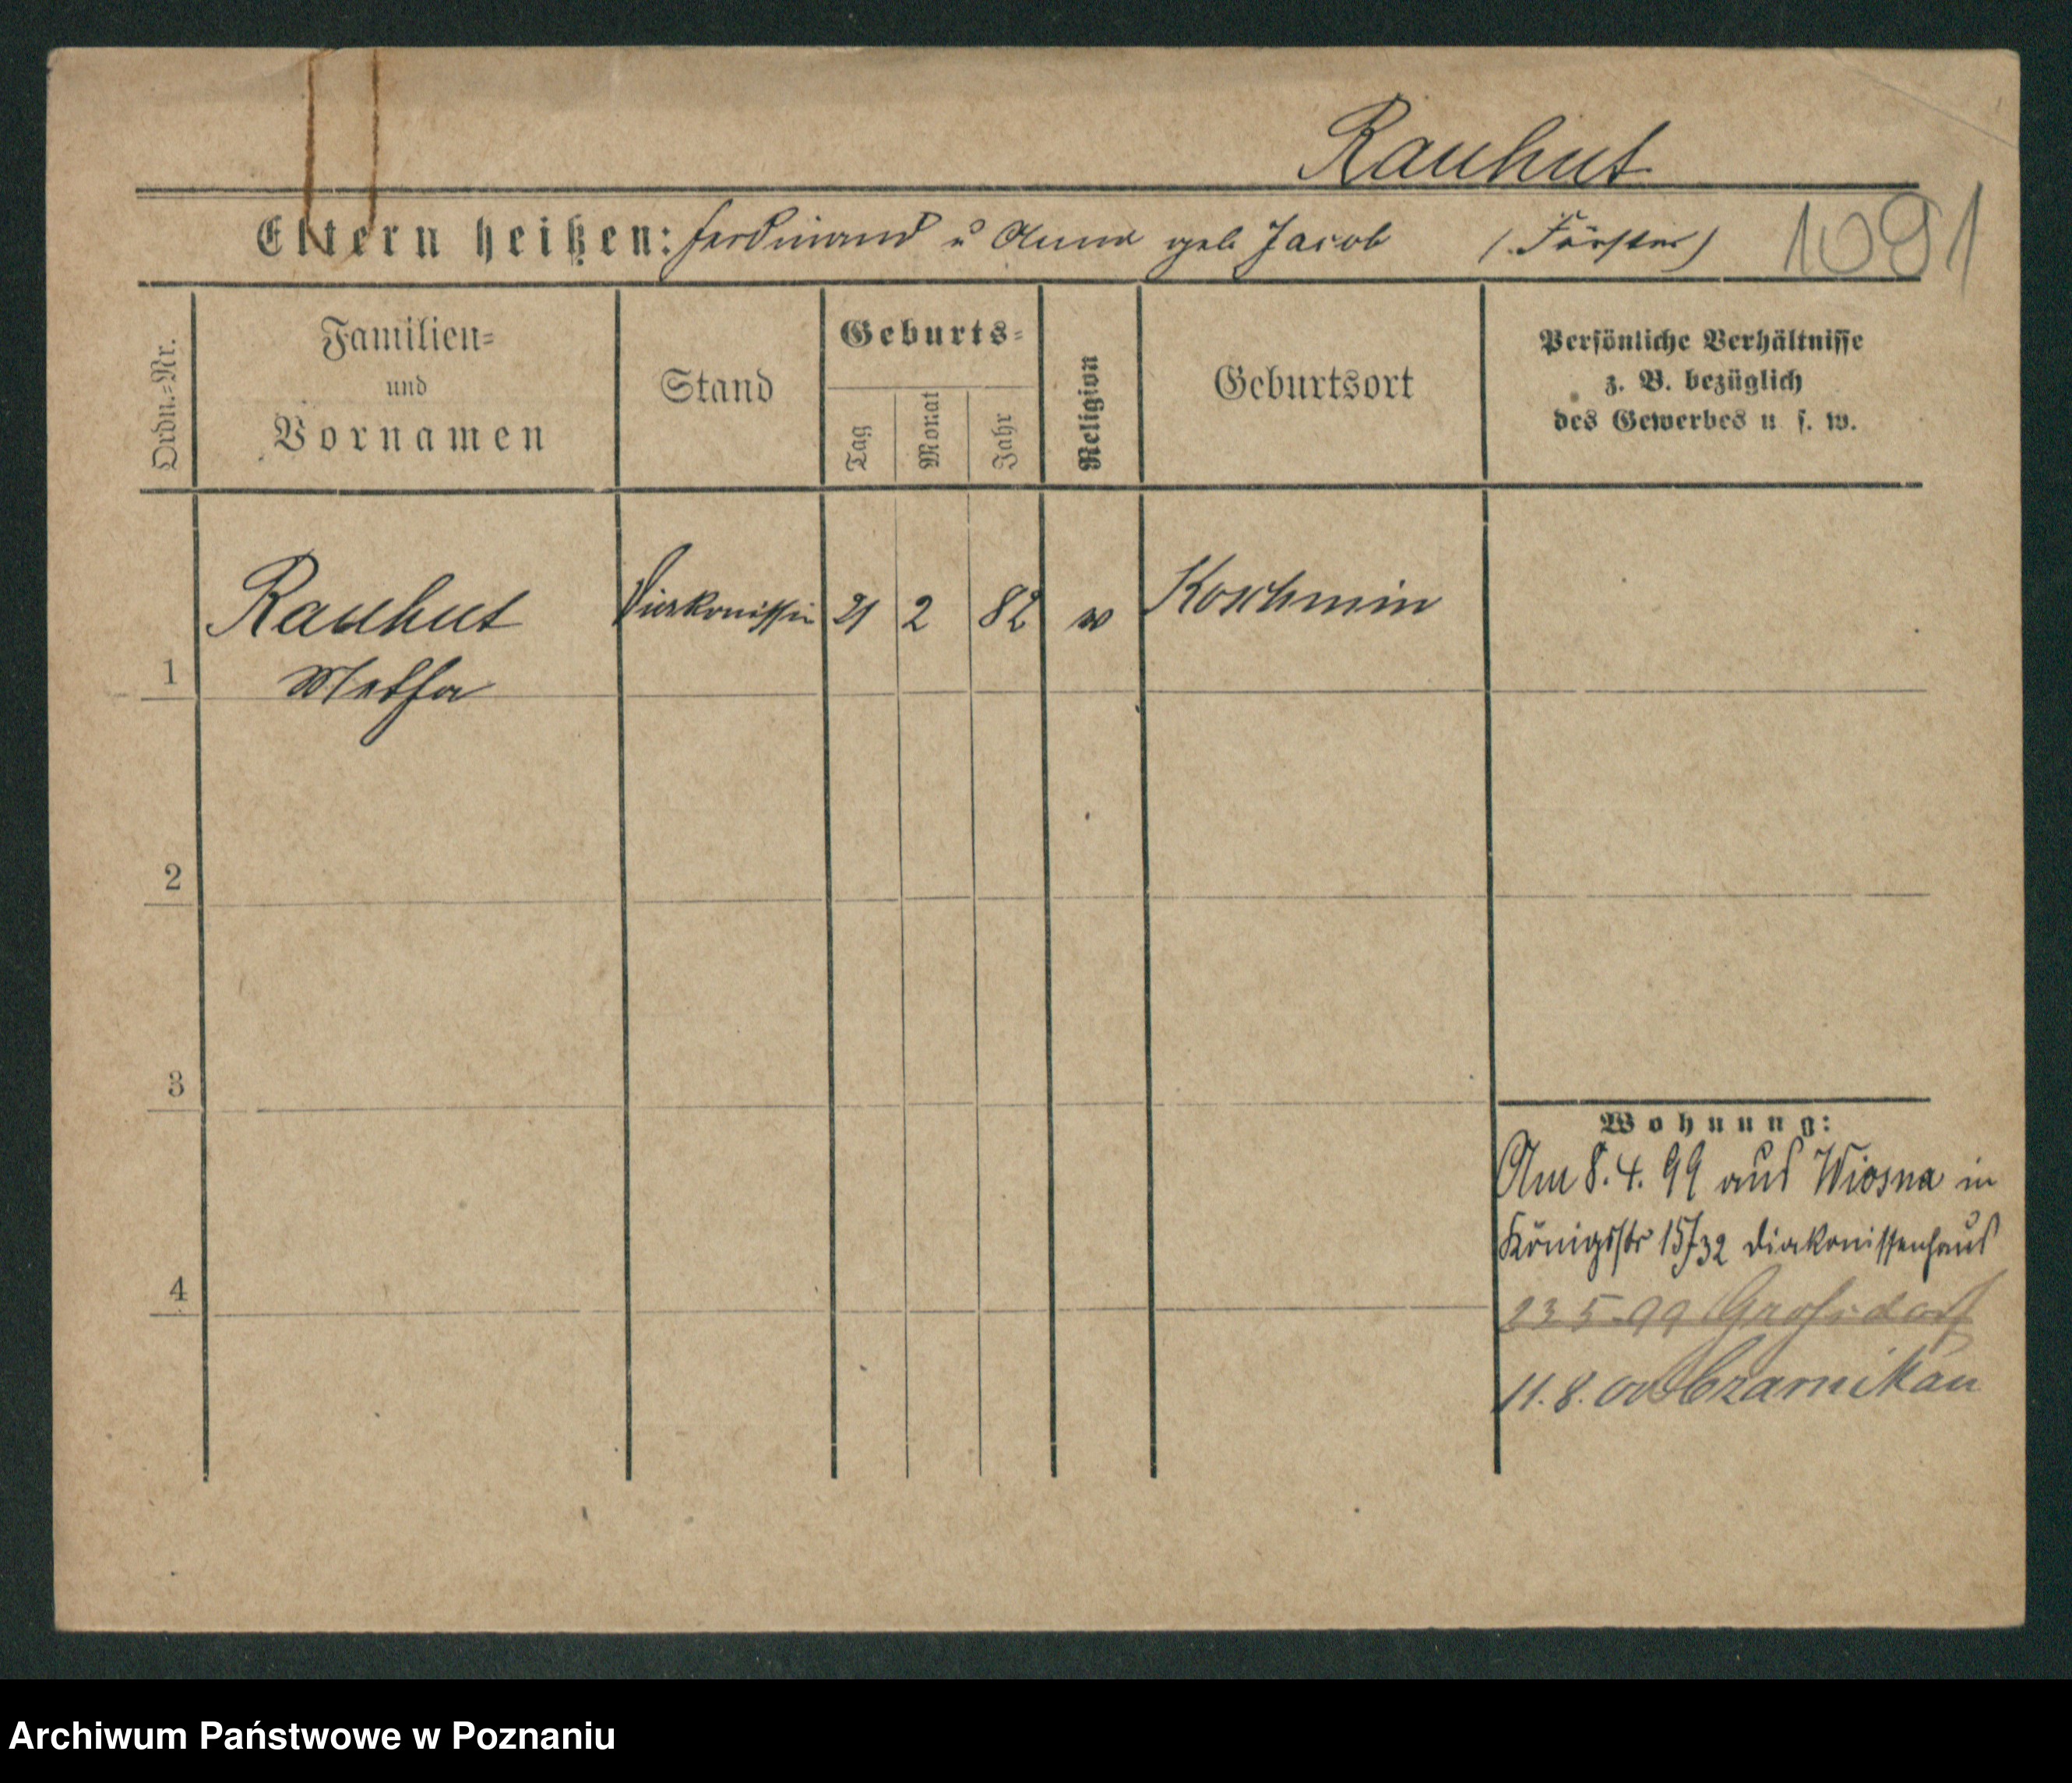 Rauhut
Eltern heißen: Ferdinand u Anna geb Jacob (Förster) 1091
Ordn.=Nr.
Familien=
und
Vornamen
Stand
Geburts=
Tag
Monat
Jahr
Religion
Geburtsort
Persönliche Verhältnisse
z. B. bezüglich
des Gewerbes u s. w.
1 Rauhut Diakonissin 21 2 82 Koschmin
Metha
2
3
4
Wohnung:
Am 8.4.99 aus Wiosna in
Königsstr 15/32 Diakonissenhaus
23 5 99
11.8.00 Czarnikau
Archiwum Państwowe w Poznaniu